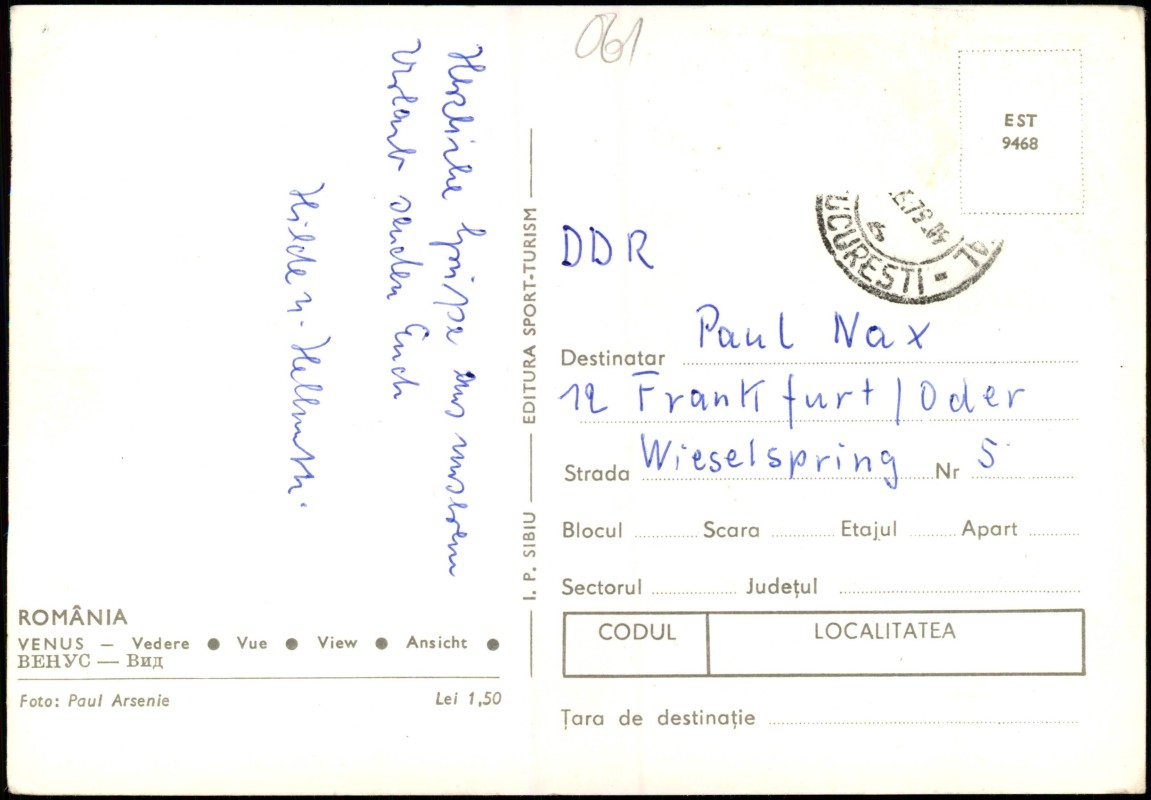 061
Herzliche Grüße aus unserem
Urlaub senden Euch
Hilde u. Hellmuth.
ROMÂNIA
VENUS — Vedere ● Vue ● View ● Ansicht ●
ВЕНУС — Вид
Foto: Paul Arsenie Lei 1,50
I. P. SIBIU — EDITURA SPORT-TURISM
EST
9468
UCUREȘTI
DDR
Destinatar Paul Nax
12 Frankfurt/Oder
Strada Wieselspring Nr 5
Blocul Scara Etajul Apart
Sectorul Județul
CODUL LOCALITATEA
Țara de destinație